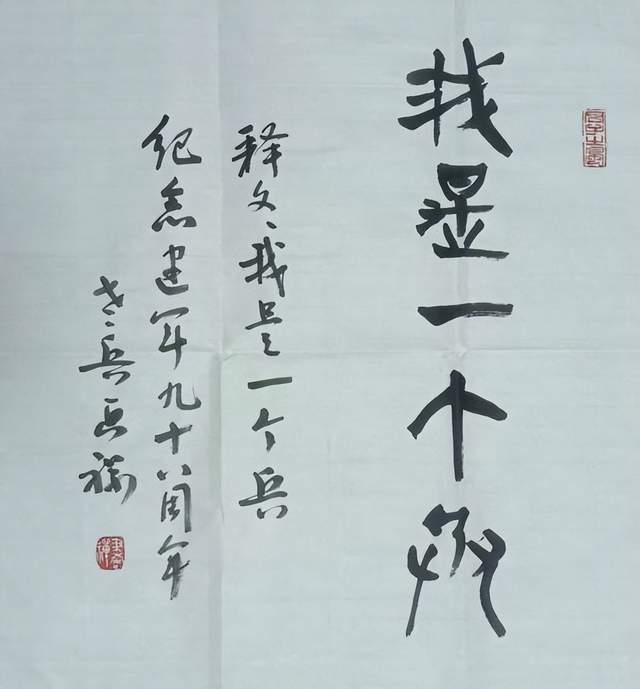 我是一个兵
释文：我是一个兵
纪念建军九十八周年
老兵